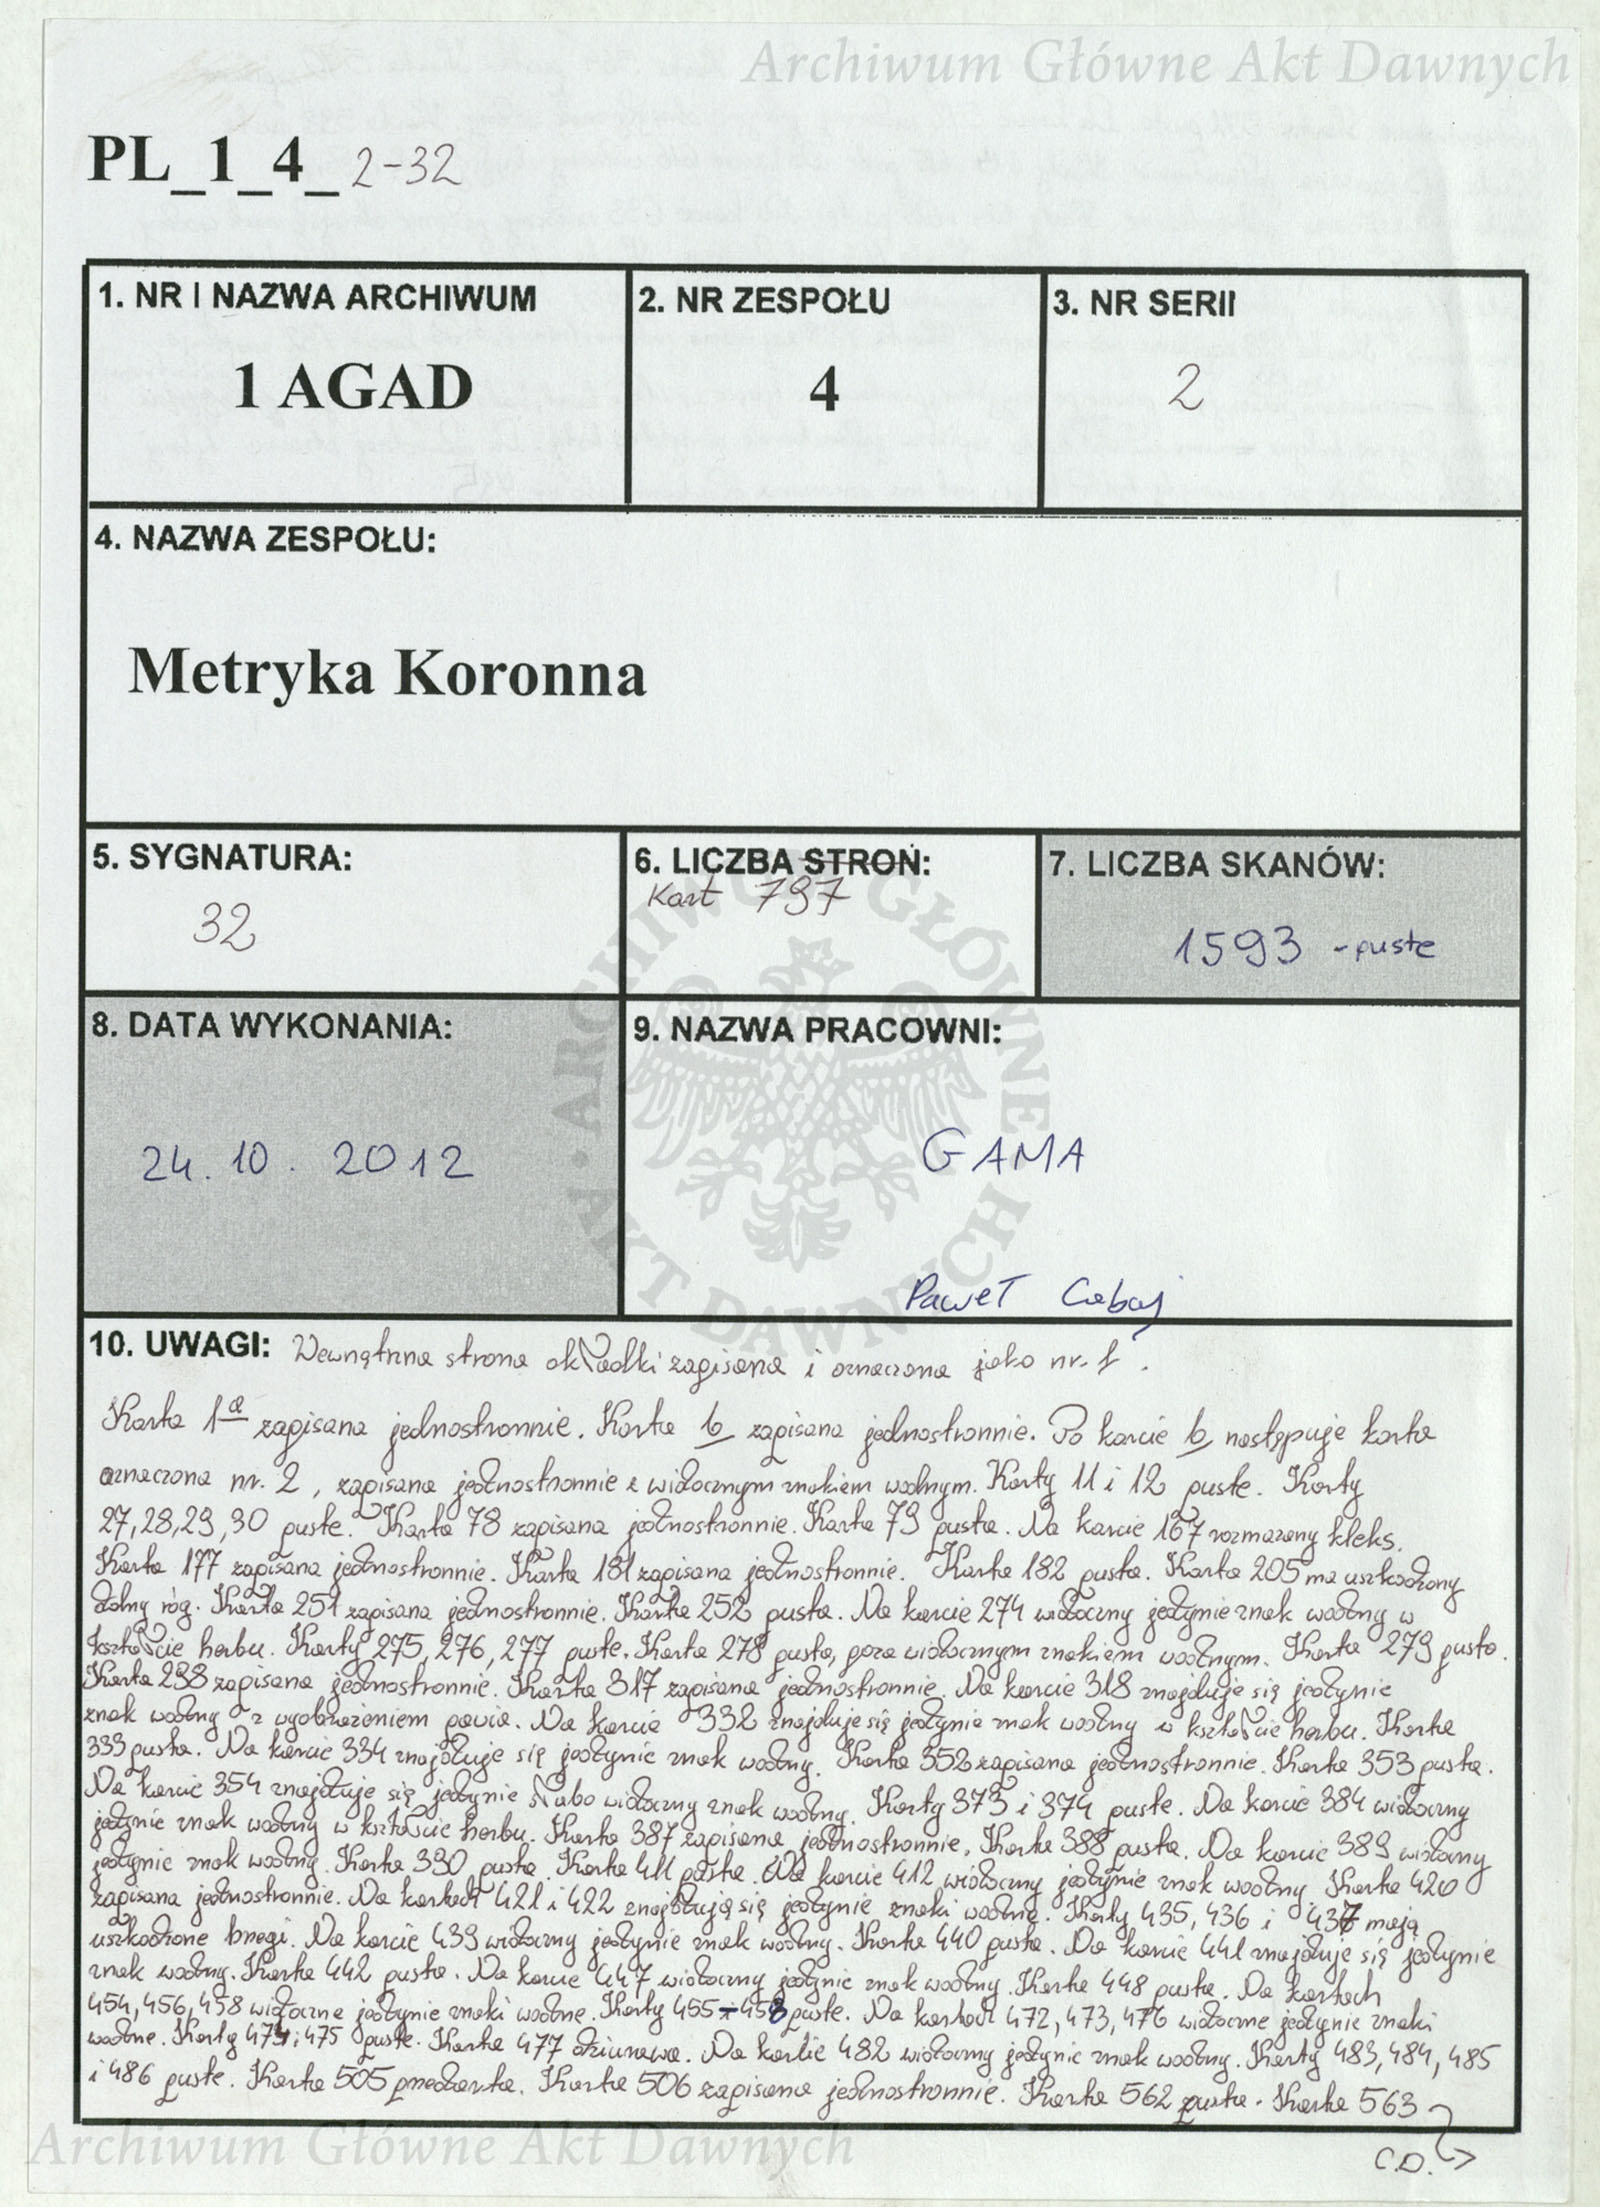 Archiwum Główne Akt Dawnych
PL_1_4_ 2-32
1. NR I NAZWA ARCHIWUM
2. NR ZESPOŁU
3. NR SERII
1 AGAD
4
2
4. NAZWA ZESPOŁU:
Metryka Koronna
5. SYGNATURA:
6. LICZBA STRON:
7. LICZBA SKANÓW:
32
Kart 797
1593 - puste
8. DATA WYKONANIA:
9. NAZWA PRACOWNI:
24.10.2012
GAMA
Paweł
ARCHIWUM GŁÓWNE · AKT DAWNYCH
10. UWAGI: Wewnętrzna strona okładki zapisana i oznaczona jako nr. 1.
Karta 1a zapisana jednostronnie. Karta b zapisana jednostronnie. Po karcie b następuje karta
oznaczona nr. 2, zapisana jednostronnie z widocznym znakiem wodnym. Karty 11 i 12 puste. Karty
27,28,29,30 puste. Karta 78 zapisana jednostronnie. Karta 79 pusta. Na karcie 167 rozmazany kleks.
Karta 177 zapisana jednostronnie. Karta 181 zapisana jednostronnie. Karta 182 pusta. Karta 205 ma uszkodzony
dolny róg. Karta 251 zapisana jednostronnie. Karta 252 pusta. Na karcie 274 widoczny jedynie znak wodny w
kształcie herbu. Karty 275, 276, 277 puste. Karta 278 pusta, poza widocznym znakiem wodnym. Karta 279 pusta.
Karta 298 zapisana jednostronnie. Karta 317 zapisana jednostronnie. Na karcie 318 znajduje się jedynie
znak wodny z wyobrażeniem pawia. Na karcie 332 znajduje się jedynie znak wodny w kształcie herbu. Karta
333 pusta. Na karcie 334 znajduje się jedynie znak wodny. Karta 352 zapisana jednostronnie. Karta 353 pusta.
Na karcie 354 znajduje się jedynie słabo widoczny znak wodny. Karty 373 i 374 puste. Na karcie 384 widoczny
jedynie znak wodny w kształcie herbu. Karta 387 zapisana jednostronnie. Karta 388 pusta. Na karcie 389 widoczny
jedynie znak wodny. Karta 390 pusta. Karta 411 pusta. Na karcie 412 widoczny jedynie znak wodny. Karta 420
zapisana jednostronnie. Na kartach 421 i 422 znajdują się jedynie znaki wodne. Karty 435, 436 i 437 mają
uszkodzone brzegi. Na karcie 439 widoczny jedynie znak wodny. Karta 440 pusta. Na karcie 441 znajduje się jedynie
znak wodny. Karta 442 pusta. Na karcie 447 widoczny jedynie znak wodny. Karta 448 pusta. Na kartach
454, 456, 458 widoczne jedynie znaki wodne. Karty 455-458 puste. Na kartach 472, 473, 476 widoczne jedynie znaki
wodne. Karty 474 i 475 puste. Karta 477 dziurawa. Na karcie 482 widoczny jedynie znak wodny. Karty 483, 484, 485
i 486 puste. Karta 505 przedarta. Karta 506 zapisana jednostronnie. Karta 562 pusta. Karta 563
C.D.
Archiwum Główne Akt Dawnych